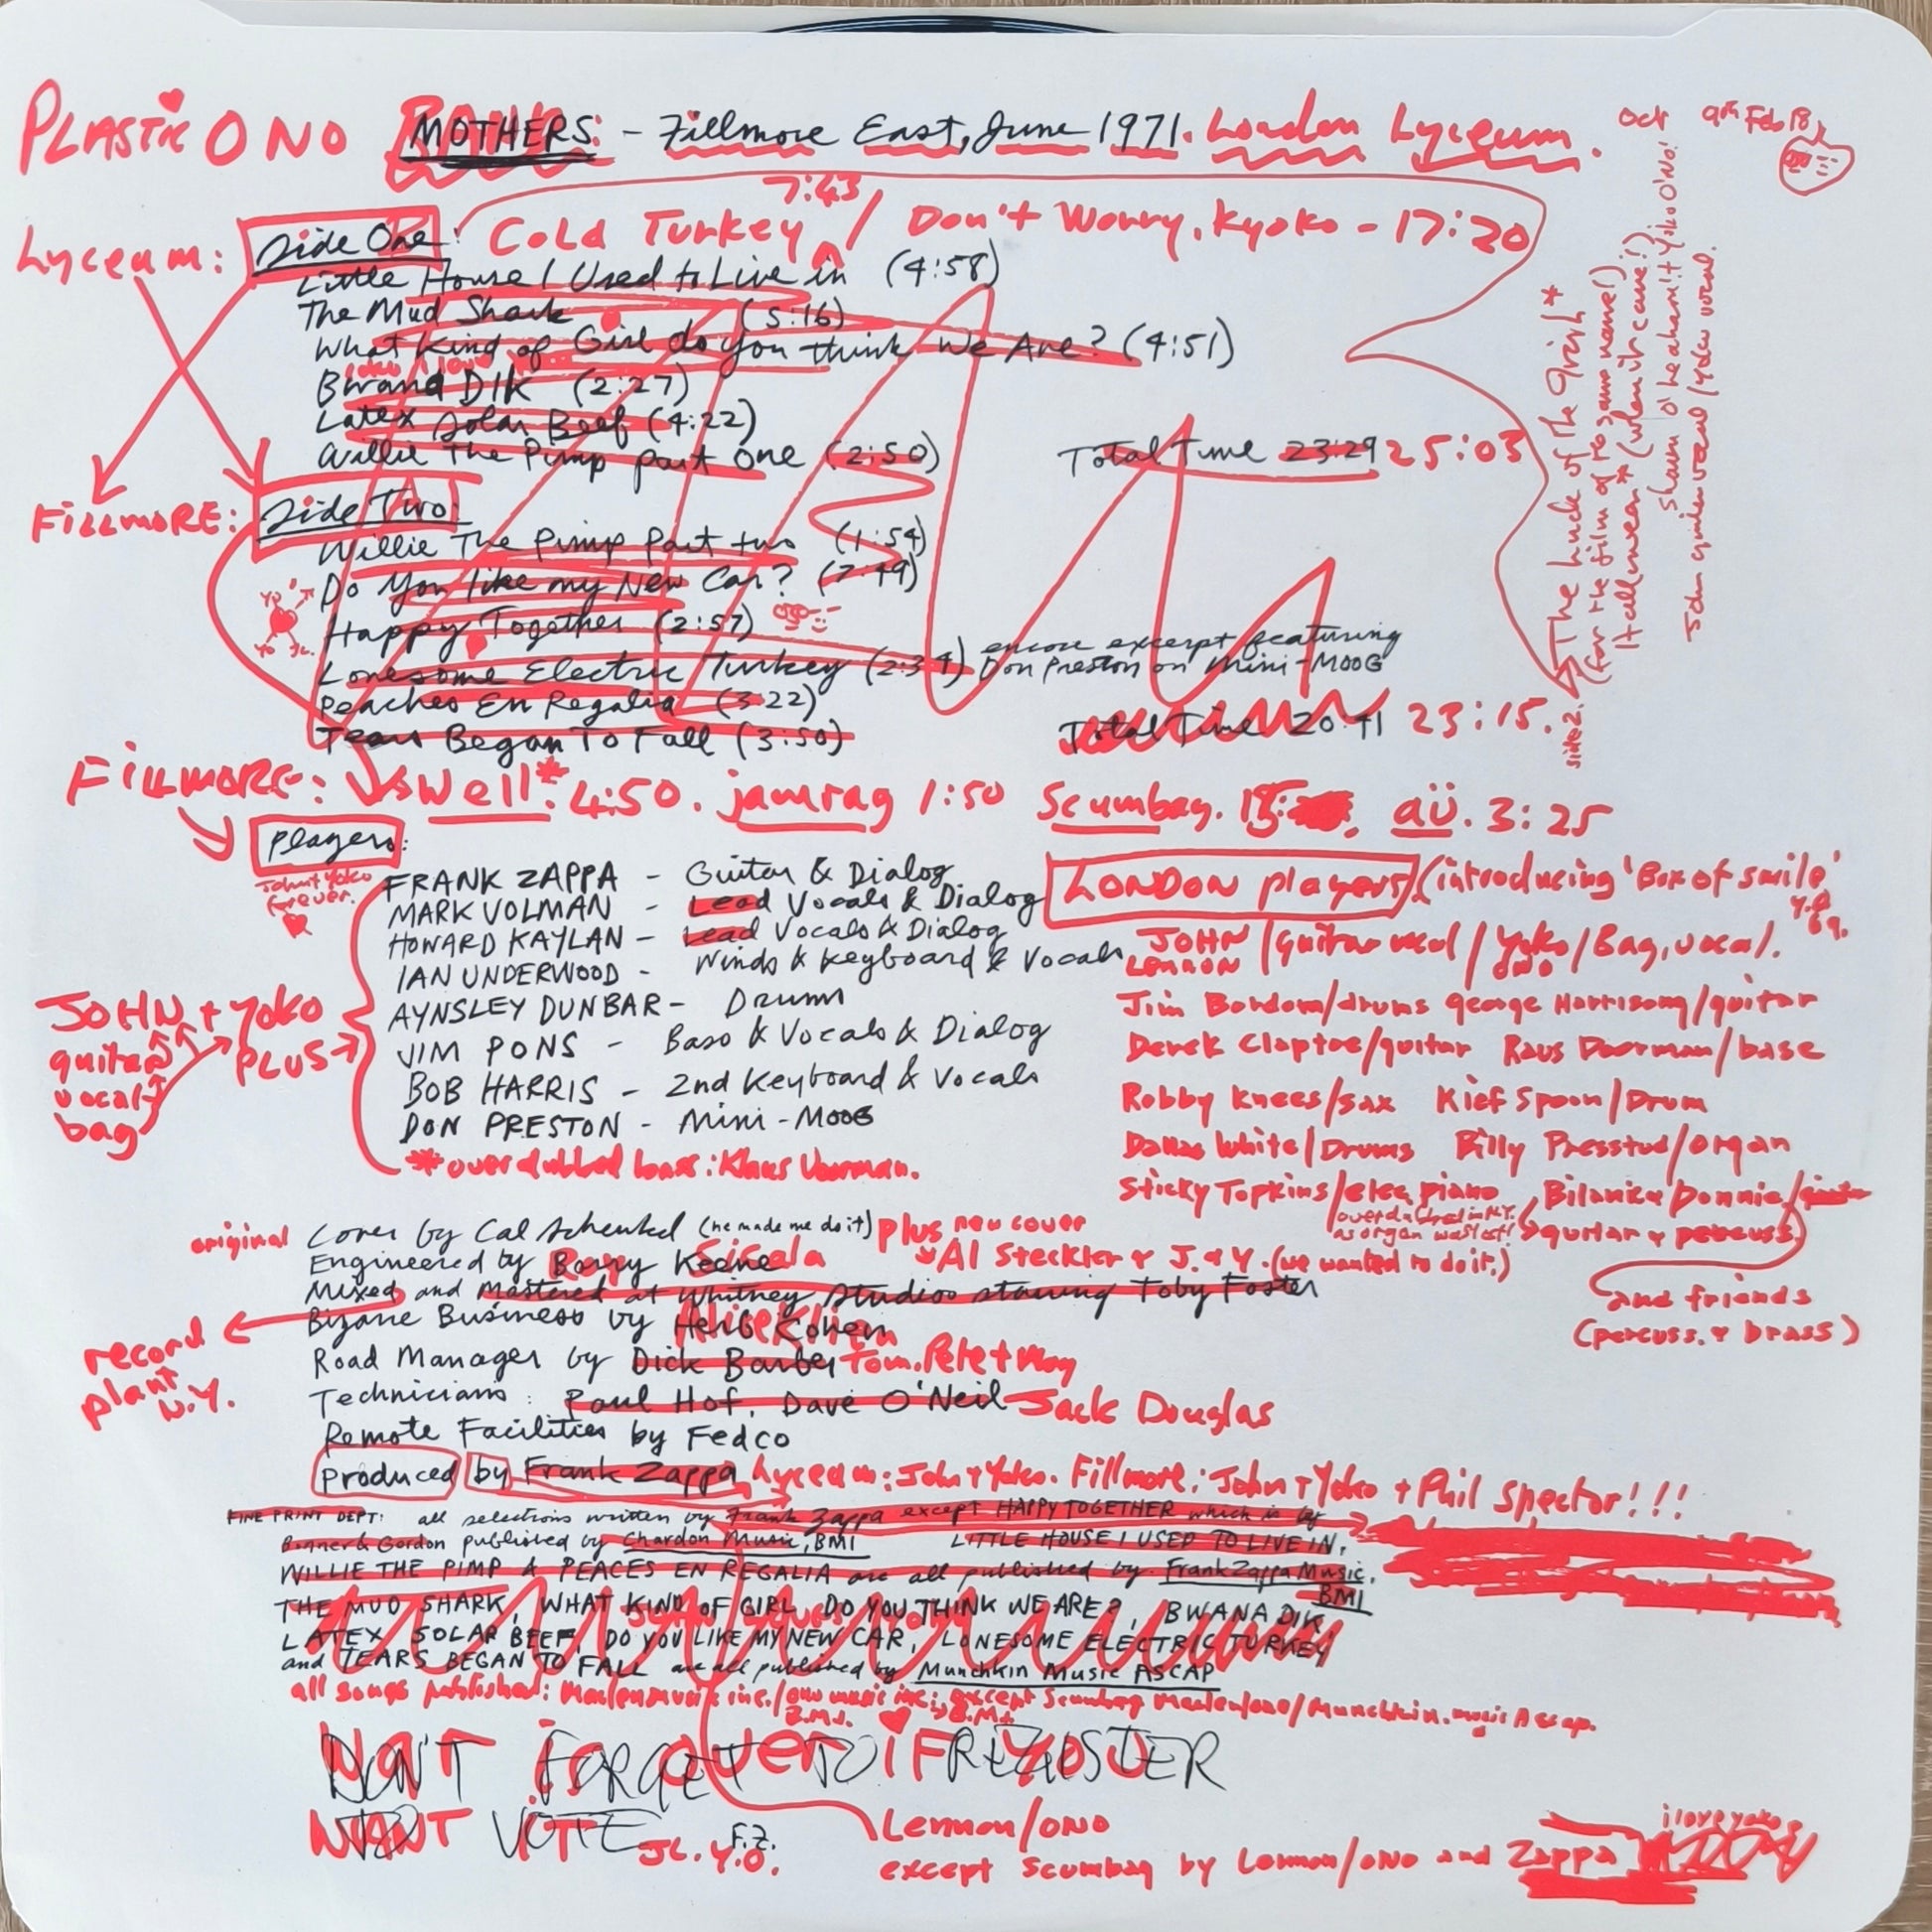 PLASTIC ONO MOTHERS: - Fillmore East, June 1971. London Lyceum.
Oct 9th Feb 18
Lyceum: Side One: Cold Turkey 7:43 / Don't Worry, Kyoko - 17:20
Little House I Used to Live in (4:58)
The Mud Shark (5:16)
What Kind of Girl do you think We Are? (4:51)
Bwana Dik (2:27)
Latex Solar Beef (4:22)
Willie The Pimp part One (2:50) Total Time 23:29 25:03
FILLMORE: Side Two:
Willie The Pimp Part two (1:54)
Do You like my New Car? (7:49)
Happy Together (2:57)
Lonesome Electric Turkey (2:34) encore excerpt featuring
Don Preston on Mini-MOOG
Peaches En Regalia (3:22)
Tears Began To Fall (3:50) Total Time 20:41 23:15.
YO
YO JL.
side 2.
The luck of the Irish *
(for the film of the same name!)
Halloween * (when it came!)
John guitar vocal / Yoko vocal.
FILLMORE: Well * 4:50. jamrag 1:50 Scumbag. aü. 3:25
Players:
John + Yoko
forever.
FRANK ZAPPA - Guitar & Dialog
MARK VOLMAN - Lead Vocals & Dialog
HOWARD KAYLAN - Lead Vocals & Dialog
IAN UNDERWOOD - Winds & Keyboard & Vocals
AYNSLEY DUNBAR - Drums
JIM PONS - Bass & Vocals & Dialog
BOB HARRIS - 2nd Keyboard & Vocals
DON PRESTON - Mini-MOOG
* overdubbed bass: Klaus Voorman.
JOHN + YOKO PLUS
guitar
vocal
bag
LONDON players (introducing 'Box of smile'
Y.O
69.
JOHN LENNON / guitar vocal / Yoko ONO / Bag, vocal.
Jim Bordom/drums George Harrisong/guitar
Derek Claptoe/guitar Raus Doorman/base
Robby Knees/sax Kief Spoon/Drum
Dallas White/Drums Billy Presstud/organ
Sticky Topkins/elec piano Bilanie & Donnie/
overdubbed in N.Y.
as organ was lost! guitar & percuss.
and friends
(percuss. & brass)
original Cover by Cal Schenkel (he made me do it) plus new cover
Al Steckler & J. & Y. (we wanted to do it.)
Engineered by Barry Keene
Mixed and Mastered at Whitney Studios starring Toby Foster
record
plant
N.Y.
Bizarre Business by Herb Cohen
Road Manager by Dick Barber Tom. Pete + May
Technicians: Paul Hof, Dave O'Neil Jack Douglas
Remote Facilities by Fedco
Produced by Frank Zappa Lyceum: John + Yoko. Fillmore: John + Yoko + Phil Spector!!!
FINE PRINT DEPT: all selections written by Frank Zappa except HAPPY TOGETHER which is by
Bonner & Gordon published by Chardon Music, BMI LITTLE HOUSE I USED TO LIVE IN,
WILLIE THE PIMP & PEACES EN REGALIA are all published by Frank Zappa Music,
BMI
THE MUD SHARK, WHAT KIND OF GIRL DO YOU THINK WE ARE?, BWANA DIK
LATEX SOLAR BEEF, DO YOU LIKE MY NEW CAR, LONESOME ELECTRIC TURKEY
and TEARS BEGAN TO FALL are all published by Munchkin Music ASCAP
all songs published: Maclen music inc./ono music inc; except Scumbag Maclen/ono/Munchkin. music Ascap.
B.M.I. B.M.I.
DON'T FORGET TO REGISTER
TO VOTE F.Z.
WAR is over if you
WANT iT JL. Y.O.
Lennon/ONO
except Scumbag by Lennon/ONO and Zappa
i love yoko